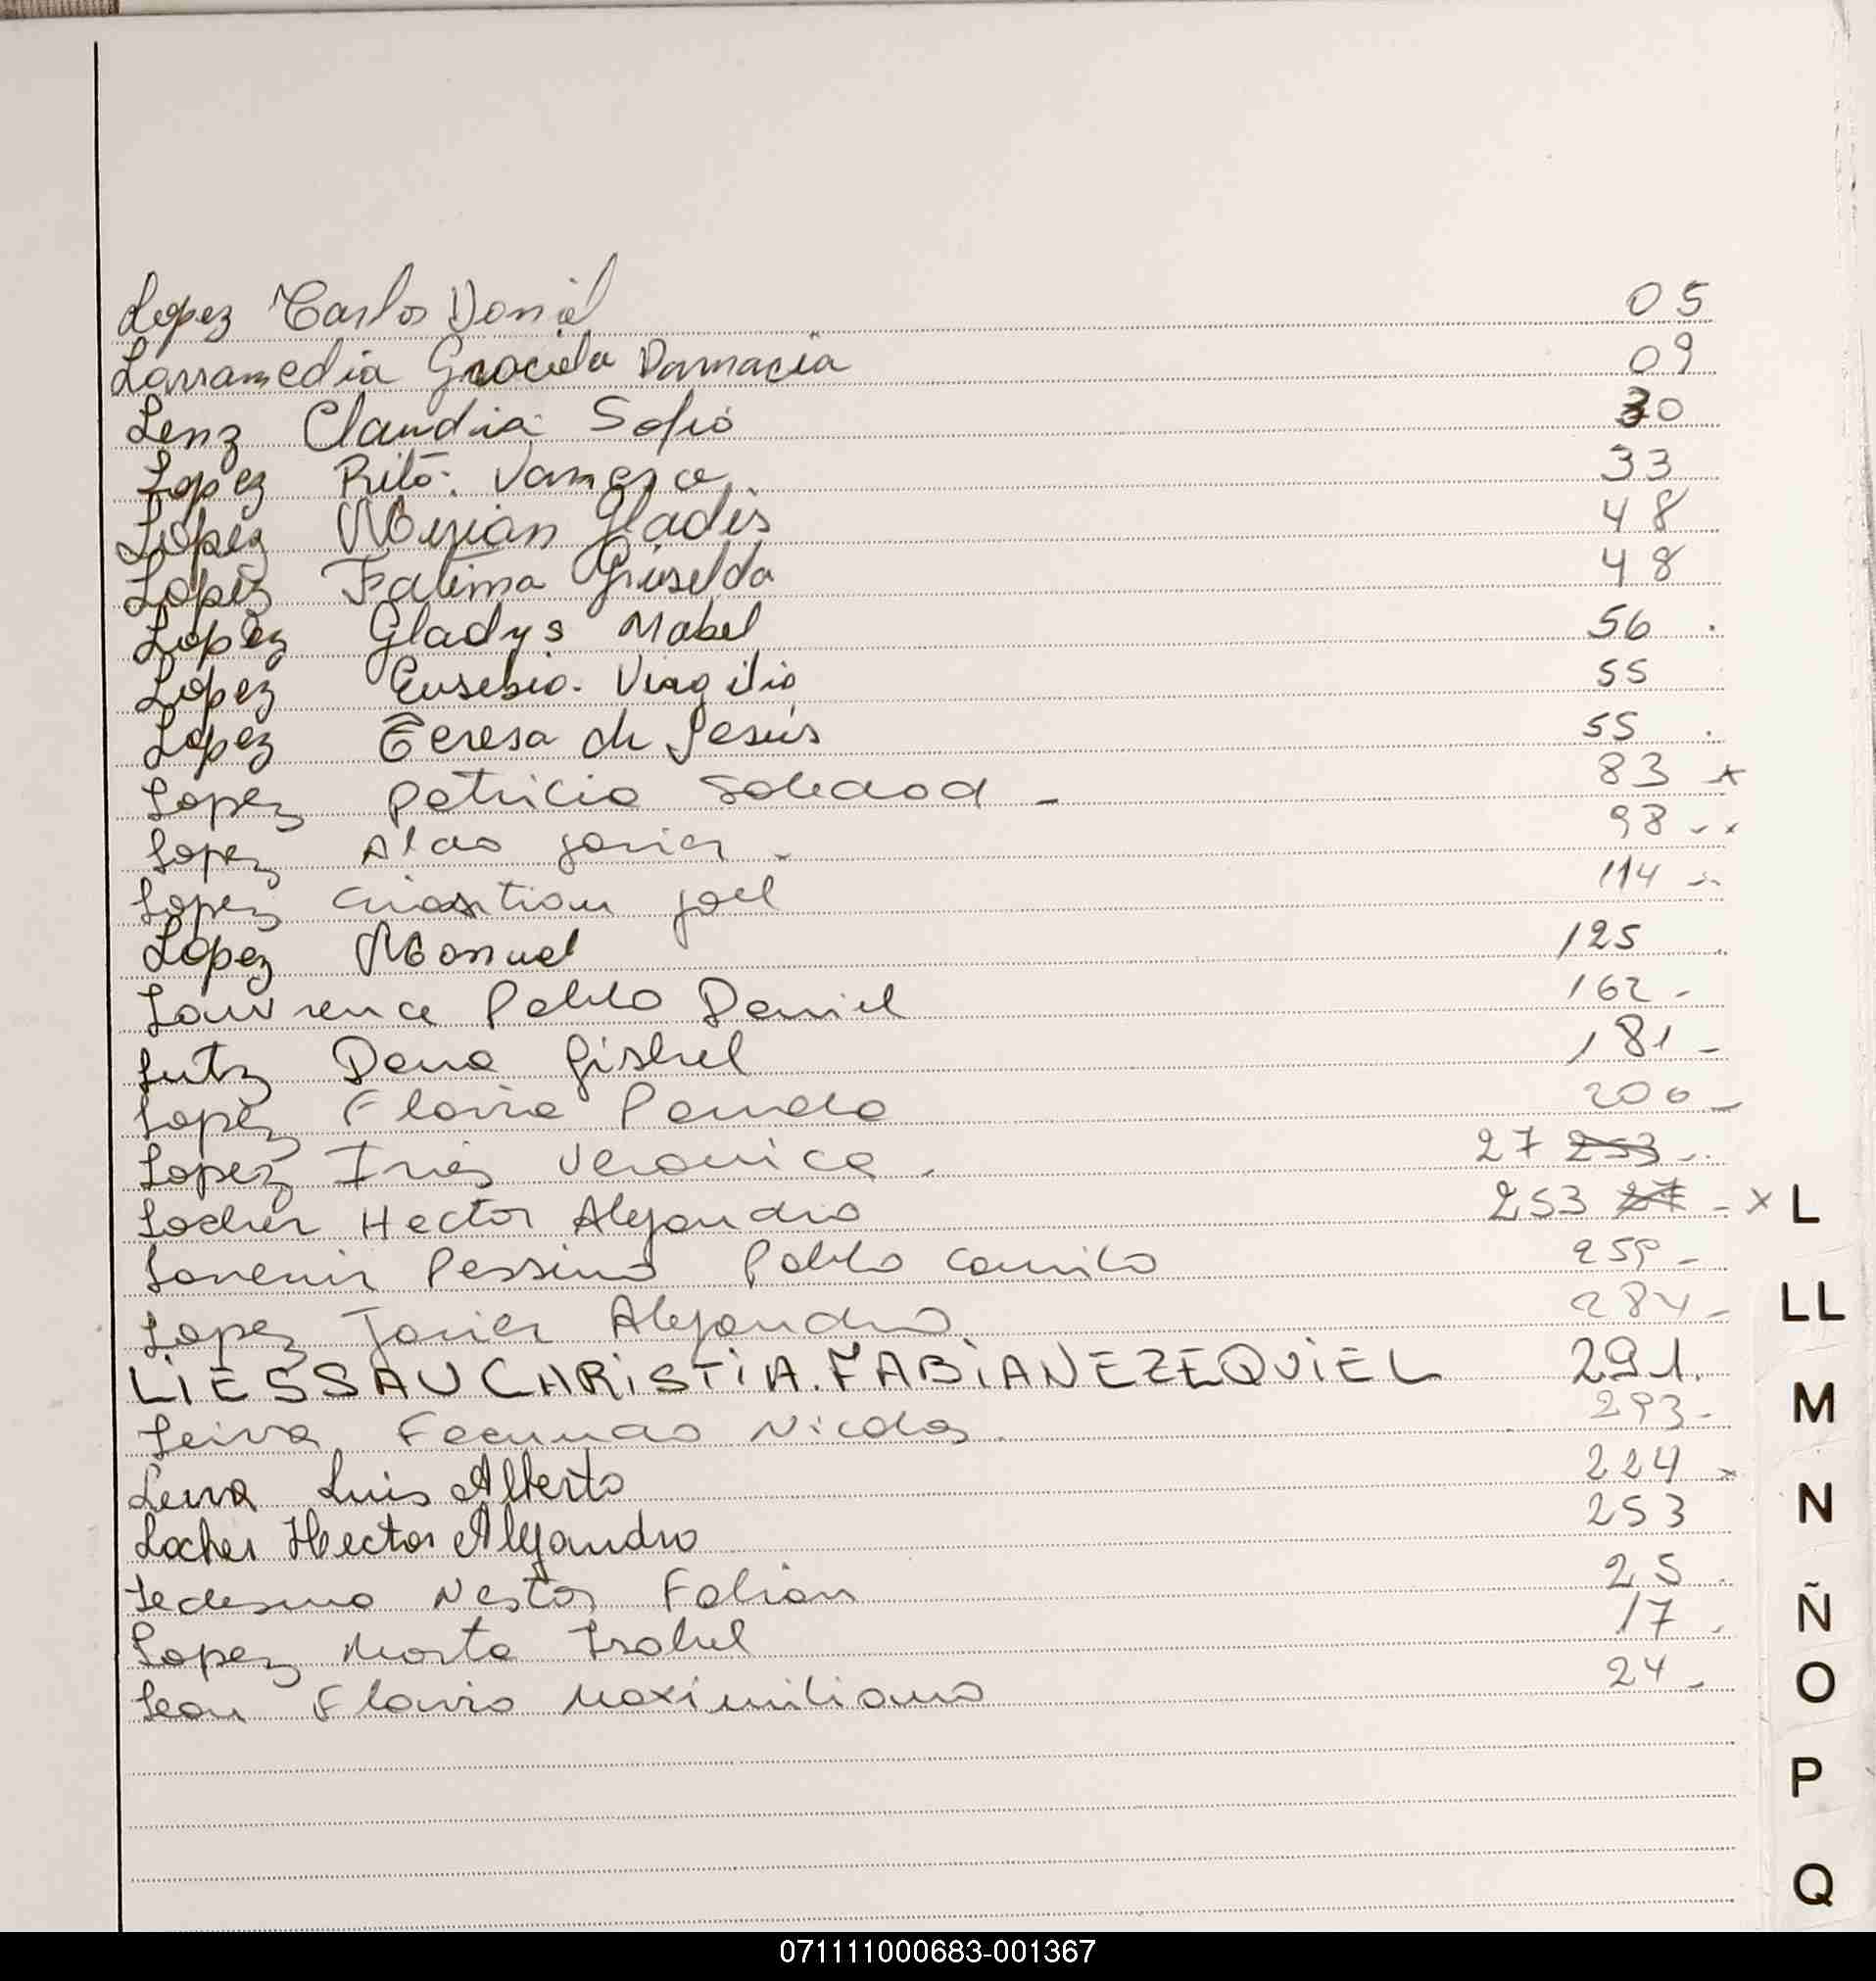 Lopez Carlos Daniel 05
Larramedia Graciela Damacia 09
Lenz Claudia Sofia 30
Lopez Rita Vanesa 33
Lopez Mirian Gladis 48
Lopez Fatima Griselda 48
Lopez Gladys Mabel 56
Lopez Eusebio Virgilio 55
Lopez Teresa de Jesús 55
Lopez Patricia Soledad - 83 x
Lopez Aldo Javier - 98 - x
Lopez Cristian Joel 114 -
Lopez Manuel 125
Lawrence Pablo Daniel 162 -
Lutz Dana Gisbel 181 -
Lopez Flavia Pamela 206 -
Lopez Iris Veronica . 27 253 -
Locher Hector Alejandro 253 27 - x
Pessino Pablo Camilo 259 -
Lopez Javier Alejandro 284 -
LIESSAU CHRISTIA. FABIAN EZEQUIEL 291.
Leiva Facundo Nicolas . 293 -
Leiva Luis Alberto 224 x
Locher Hector Alejandro 253
Ledesma Nestor Fabian 25
Lopez Marta Isabel 17
Leon Flavio Maximiliano 24 -
L
LL
M
N
Ñ
O
P
Q
071111000683-001367